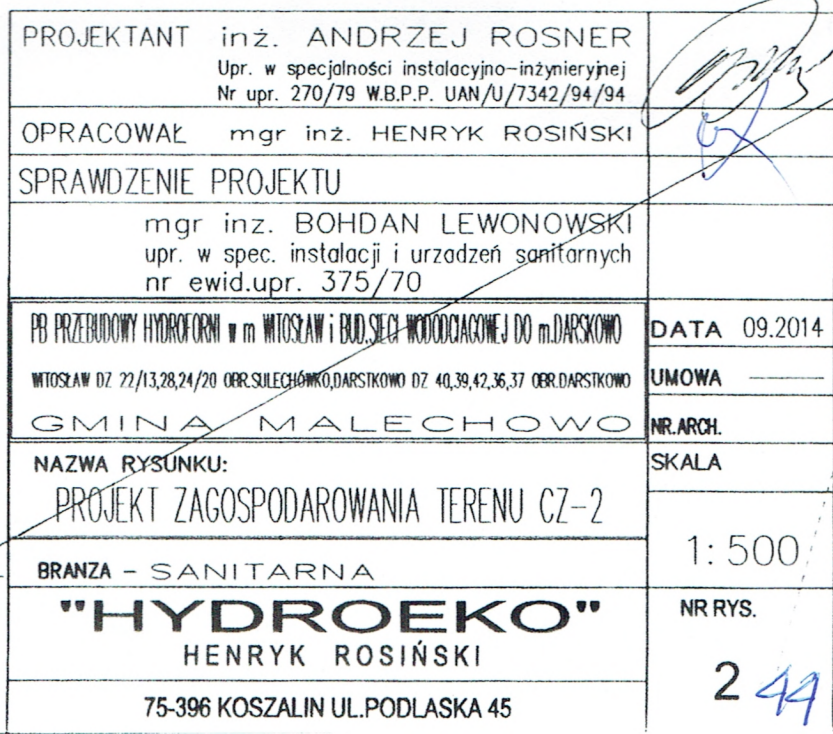 PROJEKTANT inż. ANDRZEJ ROSNER
Upr. w specjalności instalacyjno-inżynieryjnej
Nr upr. 270/79 W.B.P.P. UAN/U/7342/94/94
OPRACOWAŁ mgr inż. HENRYK ROSIŃSKI
SPRAWDZENIE PROJEKTU
mgr inz. BOHDAN LEWONOWSKI
upr. w spec. instalacji i urzadzeń sanitarnych
nr ewid.upr. 375/70
PB PRZEBUDOWY HYDROFORNI w m WITOSŁAW i BUD.SIECI WODOCIAGOWEJ DO m.DARSKOWO
WITOSŁAW DZ 22/13,28,24/20 OBR.SULECHÓWKO,DARSTKOWO DZ 40,39,42,36,37 OBR.DARSTKOWO
GMINA MALECHOWO
DATA 09.2014
UMOWA
NR.ARCH.
NAZWA RYSUNKU:
PROJEKT ZAGOSPODAROWANIA TERENU CZ-2
SKALA
1:500
BRANZA - SANITARNA
"HYDROEKO"
HENRYK ROSIŃSKI
75-396 KOSZALIN UL.PODLASKA 45
NR RYS.
2 44